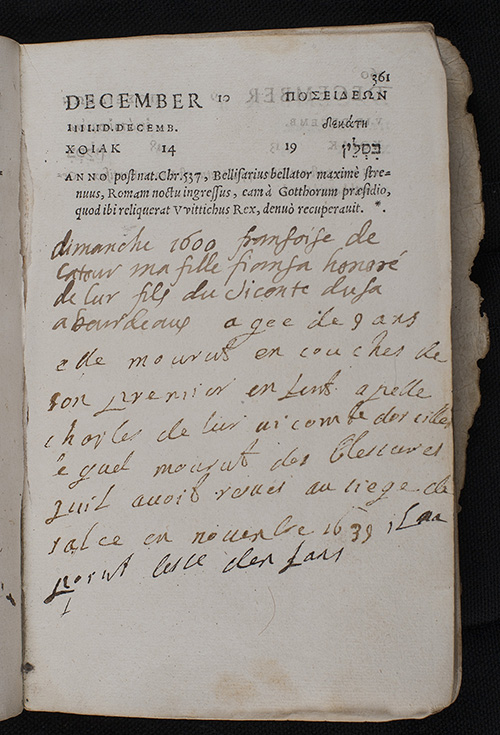 361
DECEMBER 10 ΠΟΣΕΙΔΕΩΝ
IIII.ID.DECEMB. δεκάτη
ΧΟΙΑΚ 14 19 בַּסְלֵיו
ANNO post nat. Chr. 537, Bellisarius bellator maximè stre-
nuus, Romam noctu ingressus, eam à Gotthorum præsidio,
quod ibi reliquerat Vvittichus Rex, denuò recuperauit.
dimanche 1600 fransoise de
Latour ma fille fiansa honoré
de lur fils du viconte dusa
a bourdeaus agee de 9 ans
elle mourut en couches de
son premier enfent apelle
charles de lur vicomte
lequel mourut des blessures
quil avoit resues au siege de
salce en novembre 1639
point lesse denfans